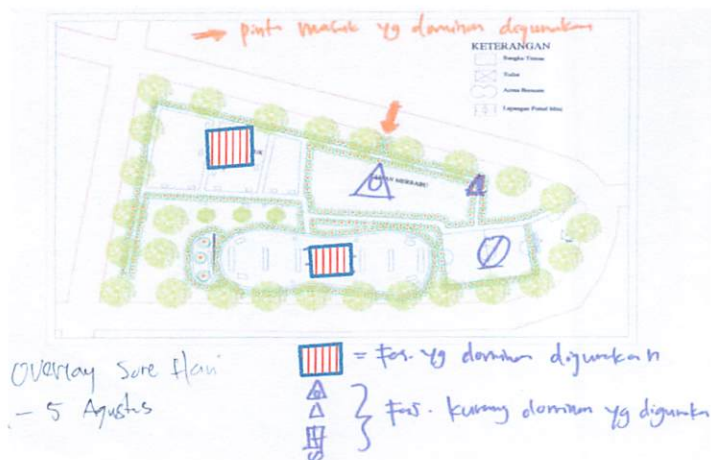 → pintu masuk yg dominan digunakan
KETERANGAN
Bangku Taman
Toilet
Arena Bermain
Lapangan Futsal Mini
TAMAN MERBABU
Overlay Sore Hari
- 5 Agustus
= Fas. yg dominan digunakan
} Fas. kurang dominan yg digunakan